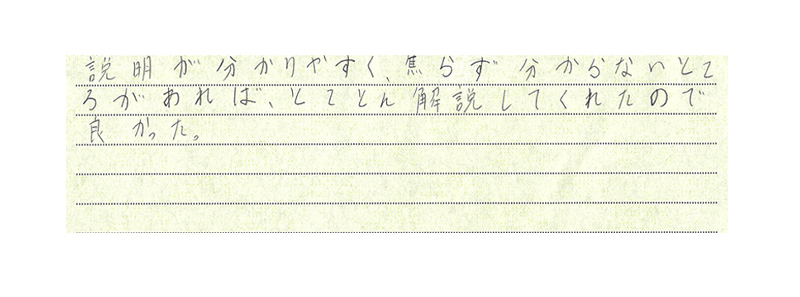 説明が分かりやすく、焦らず分からないとこ
ろがあれば、とことん解説してくれたので
良かった。